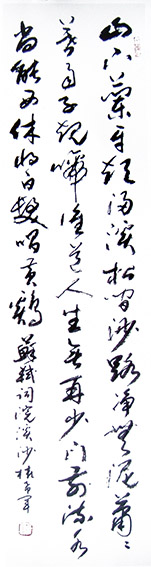 山下蘭芽短浸溪松間沙路净無泥蕭〻
暮雨子規啼誰道人生無再少門前流水
尚能西休將白髮唱黄鷄蘇軾詞浣溪沙